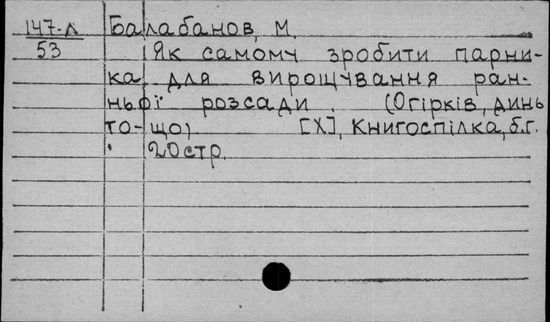 147-л Балабанов, М.
53 Як самому зробити парни-
ка для вирощування ран-
ньої розсади. (Огірків, динь
то-що) [Х], Книгоспілка, б.г.
20 стр.